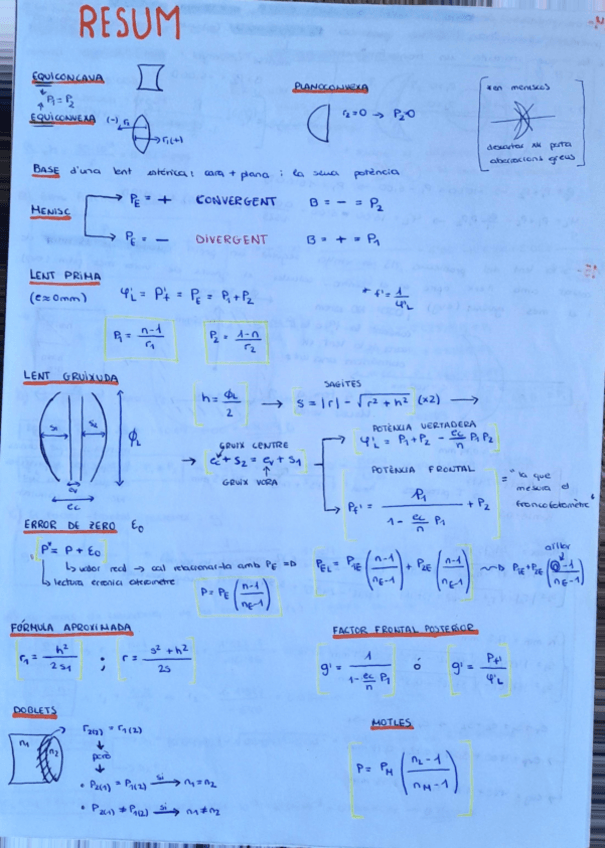 RESUM
EQUICONCAVA
P₁ = P₂
EQUICONVEXA (-) r₁(+)
PLANOCONVEXA
r₂=0 → P₂=0
*en meniscos
descartar porta
aberracions greus
BASE d'una lent esfèrica: cara + plana i la seua potència
MENISC
P_E = + CONVERGENT B = - = P₂
P_E = - DIVERGENT B = + = P₁
LENT PRIMA
(e≈0mm) φ'_L = P'_f = P_E = P₁ + P₂ * f' = 1/φ'_L
P₁ = (n-1)/r₁ P₂ = (1-n)/r₂
LENT GRUIXUDA
s₁ s₂ e_v e_c ϕ_L
SAGITES
h = ϕ_L/2 → s = |r| - √(r² + h²) (x2) →
GRUIX CENTRE
→ e_c + s₂ = e_v + s₁
GRUIX VORA
POTÈNCIA VERTADERA
φ'_L = P₁ + P₂ - (e_c/n) P₁ P₂
POTÈNCIA FRONTAL
P_f' = P₁/(1 - (e_c/n) P₁) + P₂
= "la que
mesura el
frontofocòmetre"
ERROR DE ZERO ε₀
P* = P + ε₀
↳ valor real → cal relacionar-la amb P_E =D
↳ lectura errònia
P = P_E ((n-1)/(n_E-1))
P_EL = P_1E ((n-1)/(n_E-1)) + P_2E ((n-1)/(n_E-1)) P_1E + P_2E ((n-1)/(n_E-1))
aïllar
FÓRMULA APROXIMADA
r₁ = h²/(2s₁) ; r = (s² + h²)/(2s)
FACTOR FRONTAL POSTERIOR
g' = 1/(1 - (e_c/n) P₁) ó g' = P_f'/φ'_L
DOBLETS
n₁ n₂
r₂(₁) = r₁(₂)
↓
però
↓
• P₂(₁) = P₁(₂) si → n₁ = n₂
• P₂(₁) ≠ P₁(₂) si → n₁ ≠ n₂
MOTLES
P = P_M ((n_L - 1)/(n_M - 1))